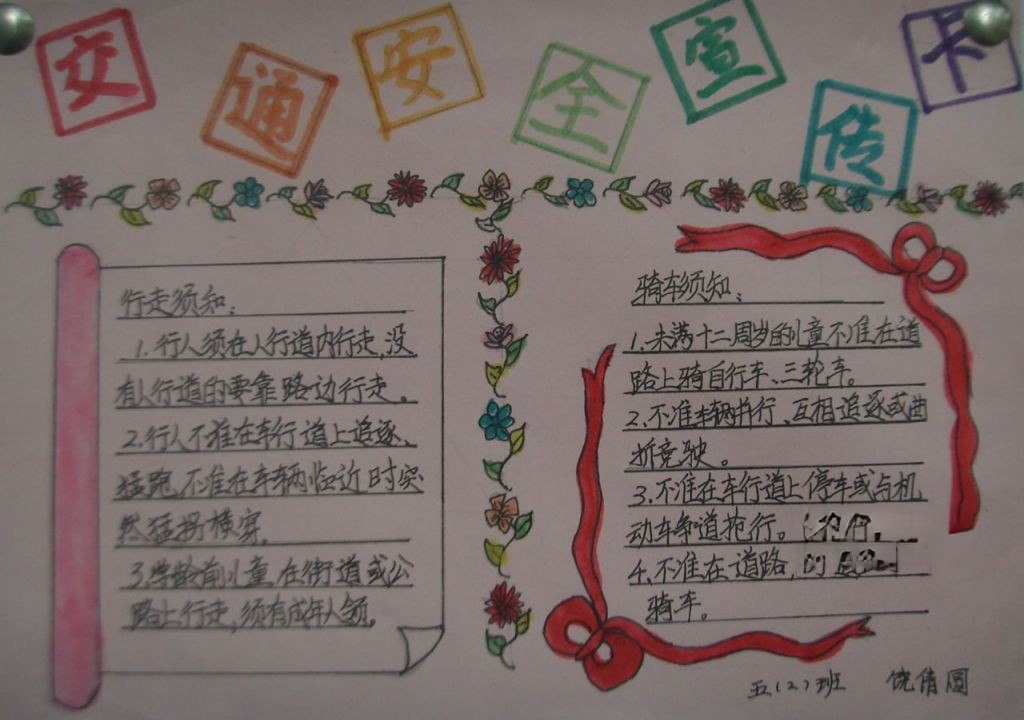 交通安全宣传卡
行走须知:
1.行人须在人行道内行走,没
有人行道的要靠路边行走。
2.行人不准在车行道上追逐、
猛跑,不准在车辆临近时突
然猛拐横穿。
3.学龄前儿童在街道或公
路上行走,须有成年人领。
骑车须知:
1.未满十二周岁的儿童不准在道
路上骑自行车、三轮车。
2.不准车辆并行、互相追逐或曲
折竞驶。
3.不准在车行道上停车或与机
动车争道抢行。
4.不准在道路
骑车。
五(2)班 饶倩圆